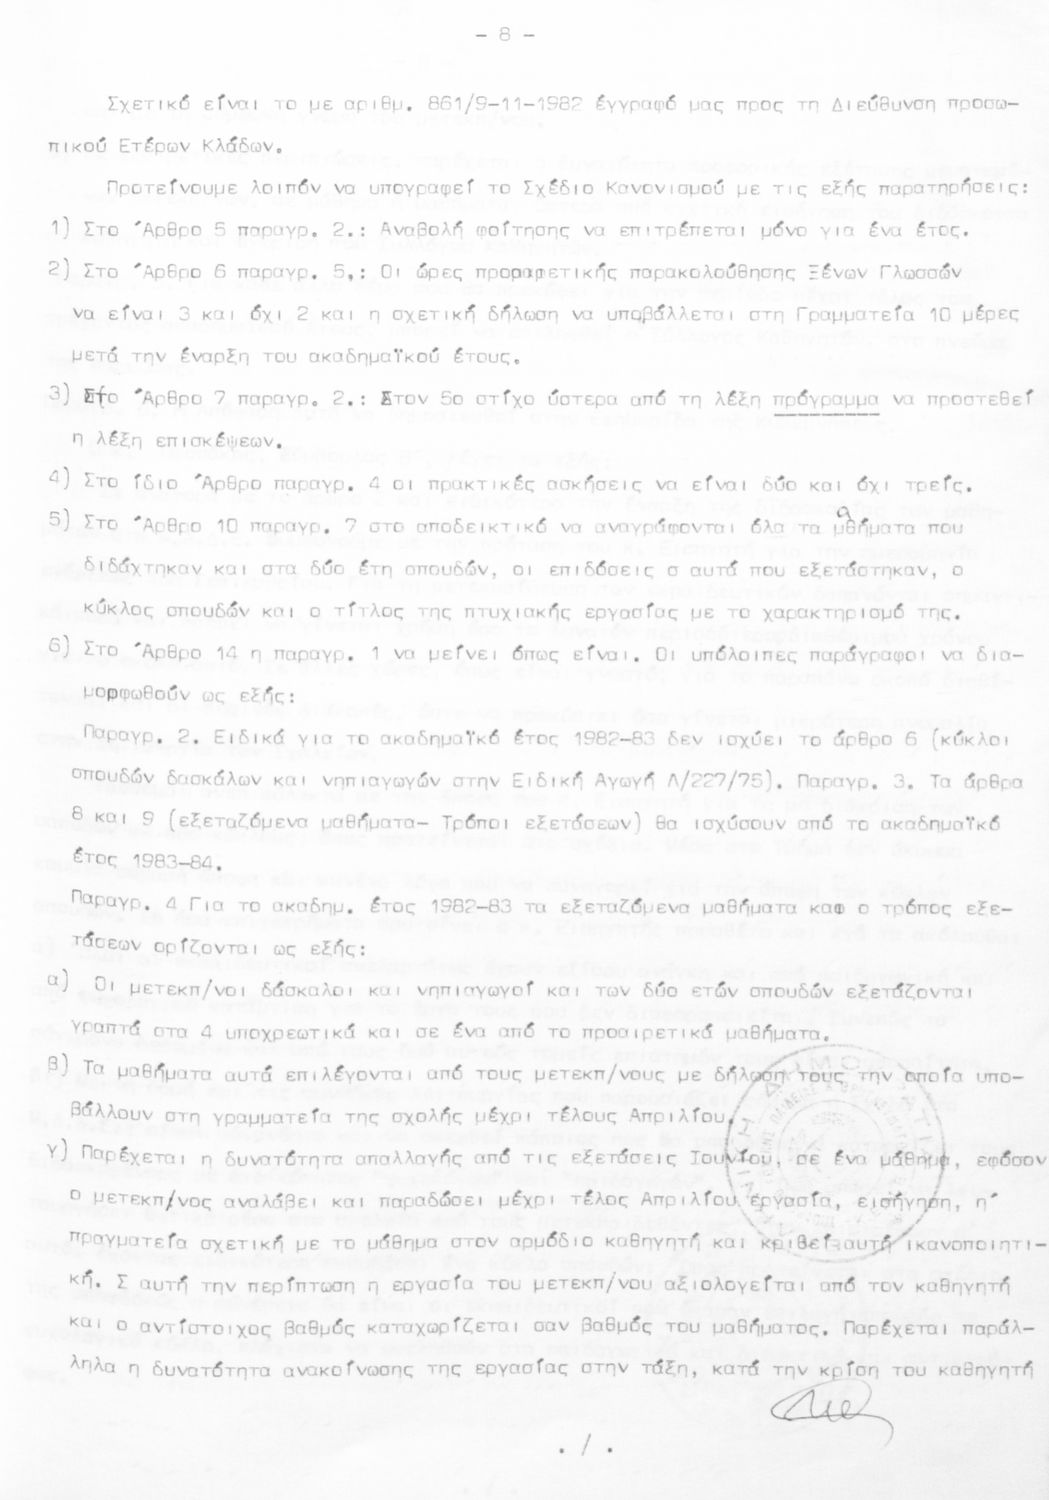 - 8 -
Σχετικό είναι το με αριθμ. 861/9-11-1982 έγγραφό μας προς τη Διεύθυνση προσω-
πικού Ετέρων Κλάδων.
Προτείνουμε λοιπόν να υπογραφεί το Σχέδιο Κανονισμού με τις εξής παρατηρήσεις:
1) Στο Άρθρο 5 παραγρ. 2.: Αναβολή φοίτησης να επιτρέπεται μόνο για ένα έτος.
2) Στο Άρθρο 6 παραγρ. 5.: Οι ώρες προαιρετικής παρακολούθησης Ξένων Γλωσσών
να είναι 3 και όχι 2 και η σχετική δήλωση να υποβάλλεται στη Γραμματεία 10 μέρες
μετά την έναρξη του ακαδημαϊκού έτους.
3) Στο Άρθρο 7 παραγρ. 2.: Στον 5ο στίχο ύστερα από τη λέξη πρόγραμμα να προστεθεί
η λέξη επισκέψεων.
4) Στο ίδιο Άρθρο παραγρ. 4 οι πρακτικές ασκήσεις να είναι δύο και όχι τρείς.
5) Στο Άρθρο 10 παραγρ. 7 στο αποδεικτικό να αναγράφονται όλα τα μαθήματα που
διδάχτηκαν και στα δύο έτη σπουδών, οι επιδόσεις σ αυτά που εξετάστηκαν, ο
κύκλος σπουδών και ο τίτλος της πτυχιακής εργασίας με το χαρακτηρισμό της.
6) Στο Άρθρο 14 η παραγρ. 1 να μείνει όπως είναι. Οι υπόλοιπες παράγραφοι να δια-
μορφωθούν ως εξής:
Παραγρ. 2. Ειδικά για το ακαδημαϊκό έτος 1982-83 δεν ισχύει το άρθρο 6 (κύκλοι
σπουδών δασκάλων και νηπιαγωγών στην Ειδική Αγωγή Λ/227/75). Παραγρ. 3. Τα άρθρα
8 και 9 (εξεταζόμενα μαθήματα- Τρόποι εξετάσεων) θα ισχύσουν από το ακαδημαϊκό
έτος 1983-84.
Παραγρ. 4 Για το ακαδημ. έτος 1982-83 τα εξεταζόμενα μαθήματα και ο τρόπος εξε-
τάσεων ορίζονται ως εξής:
α) Οι μετεκπ/νοι δάσκαλοι και νηπιαγωγοί και των δύο ετών σπουδών εξετάζονται
γραπτά στα 4 υποχρεωτικά και σε ένα από το προαιρετικά μαθήματα.
β) Τα μαθήματα αυτά επιλέγονται από τους μετεκπ/νους με δήλωση τους την οποία υπο-
βάλλουν στη γραμματεία της σχολής μέχρι τέλους Απριλίου.
γ) Παρέχεται η δυνατότητα απαλλαγής από τις εξετάσεις Ιουνίου, σε ένα μάθημα, εφόσον
ο μετεκπ/νος αναλάβει και παραδώσει μέχρι τέλος Απριλίου εργασία, εισήγηση, ή
πραγματεία σχετική με το μάθημα στον αρμόδιο καθηγητή και κριθεί αυτή ικανοποιητι-
κή. Σ αυτή την περίπτωση η εργασία του μετεκπ/νου αξιολογείται από τον καθηγητή
και ο αντίστοιχος βαθμός καταχωρίζεται σαν βαθμός του μαθήματος. Παρέχεται παράλ-
ληλα η δυνατότητα ανακοίνωσης της εργασίας στην τάξη, κατά την κρίση του καθηγητή
. / .